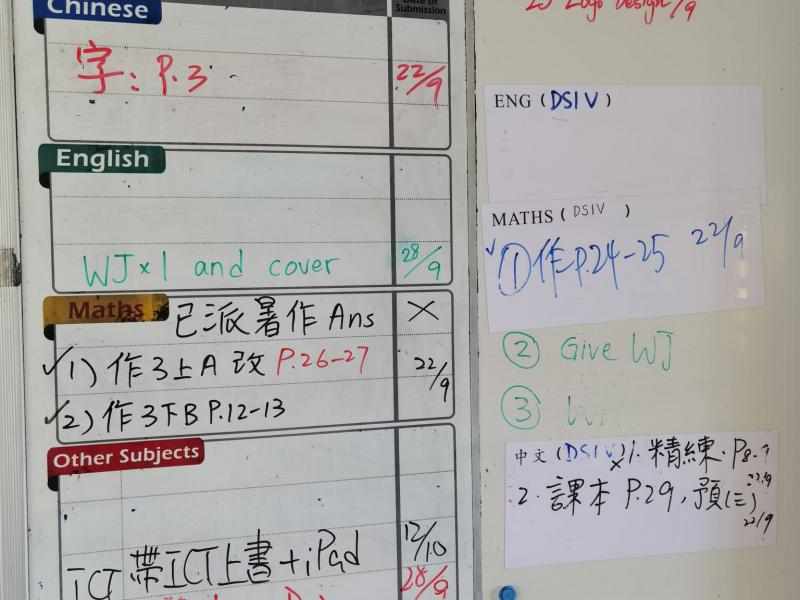 Chinese
Date of
Submission
字：P.3 22/9
English
WJ×1 and cover 28/9
Maths 已派暑作Ans ×
✓1) 作3上A 改 P.26-27 22/9
✓2) 作3下B P.12-13
Other Subjects
ICT 帶ICT上書+iPad 12/10
28/9
Logo Design /9
ENG (DSIV)
MATHS (DSIV)
✓①作P.24-25 22/9
② Give WJ
③
中文 (DSIV) ×1. 精練．P8-9
22/9
2. 課本 P.29，預(三)
22/9